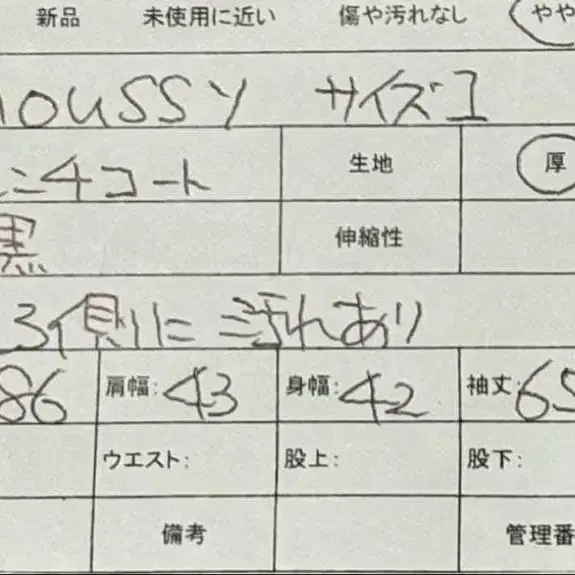 新品 未使用に近い 傷や汚れなし やや
moussy サイズ1
コート 生地 厚
黒 伸縮性
側に 汚れあり
86 肩幅: 43 身幅: 42 袖丈: 65
ウエスト: 股上: 股下:
備考 管理番